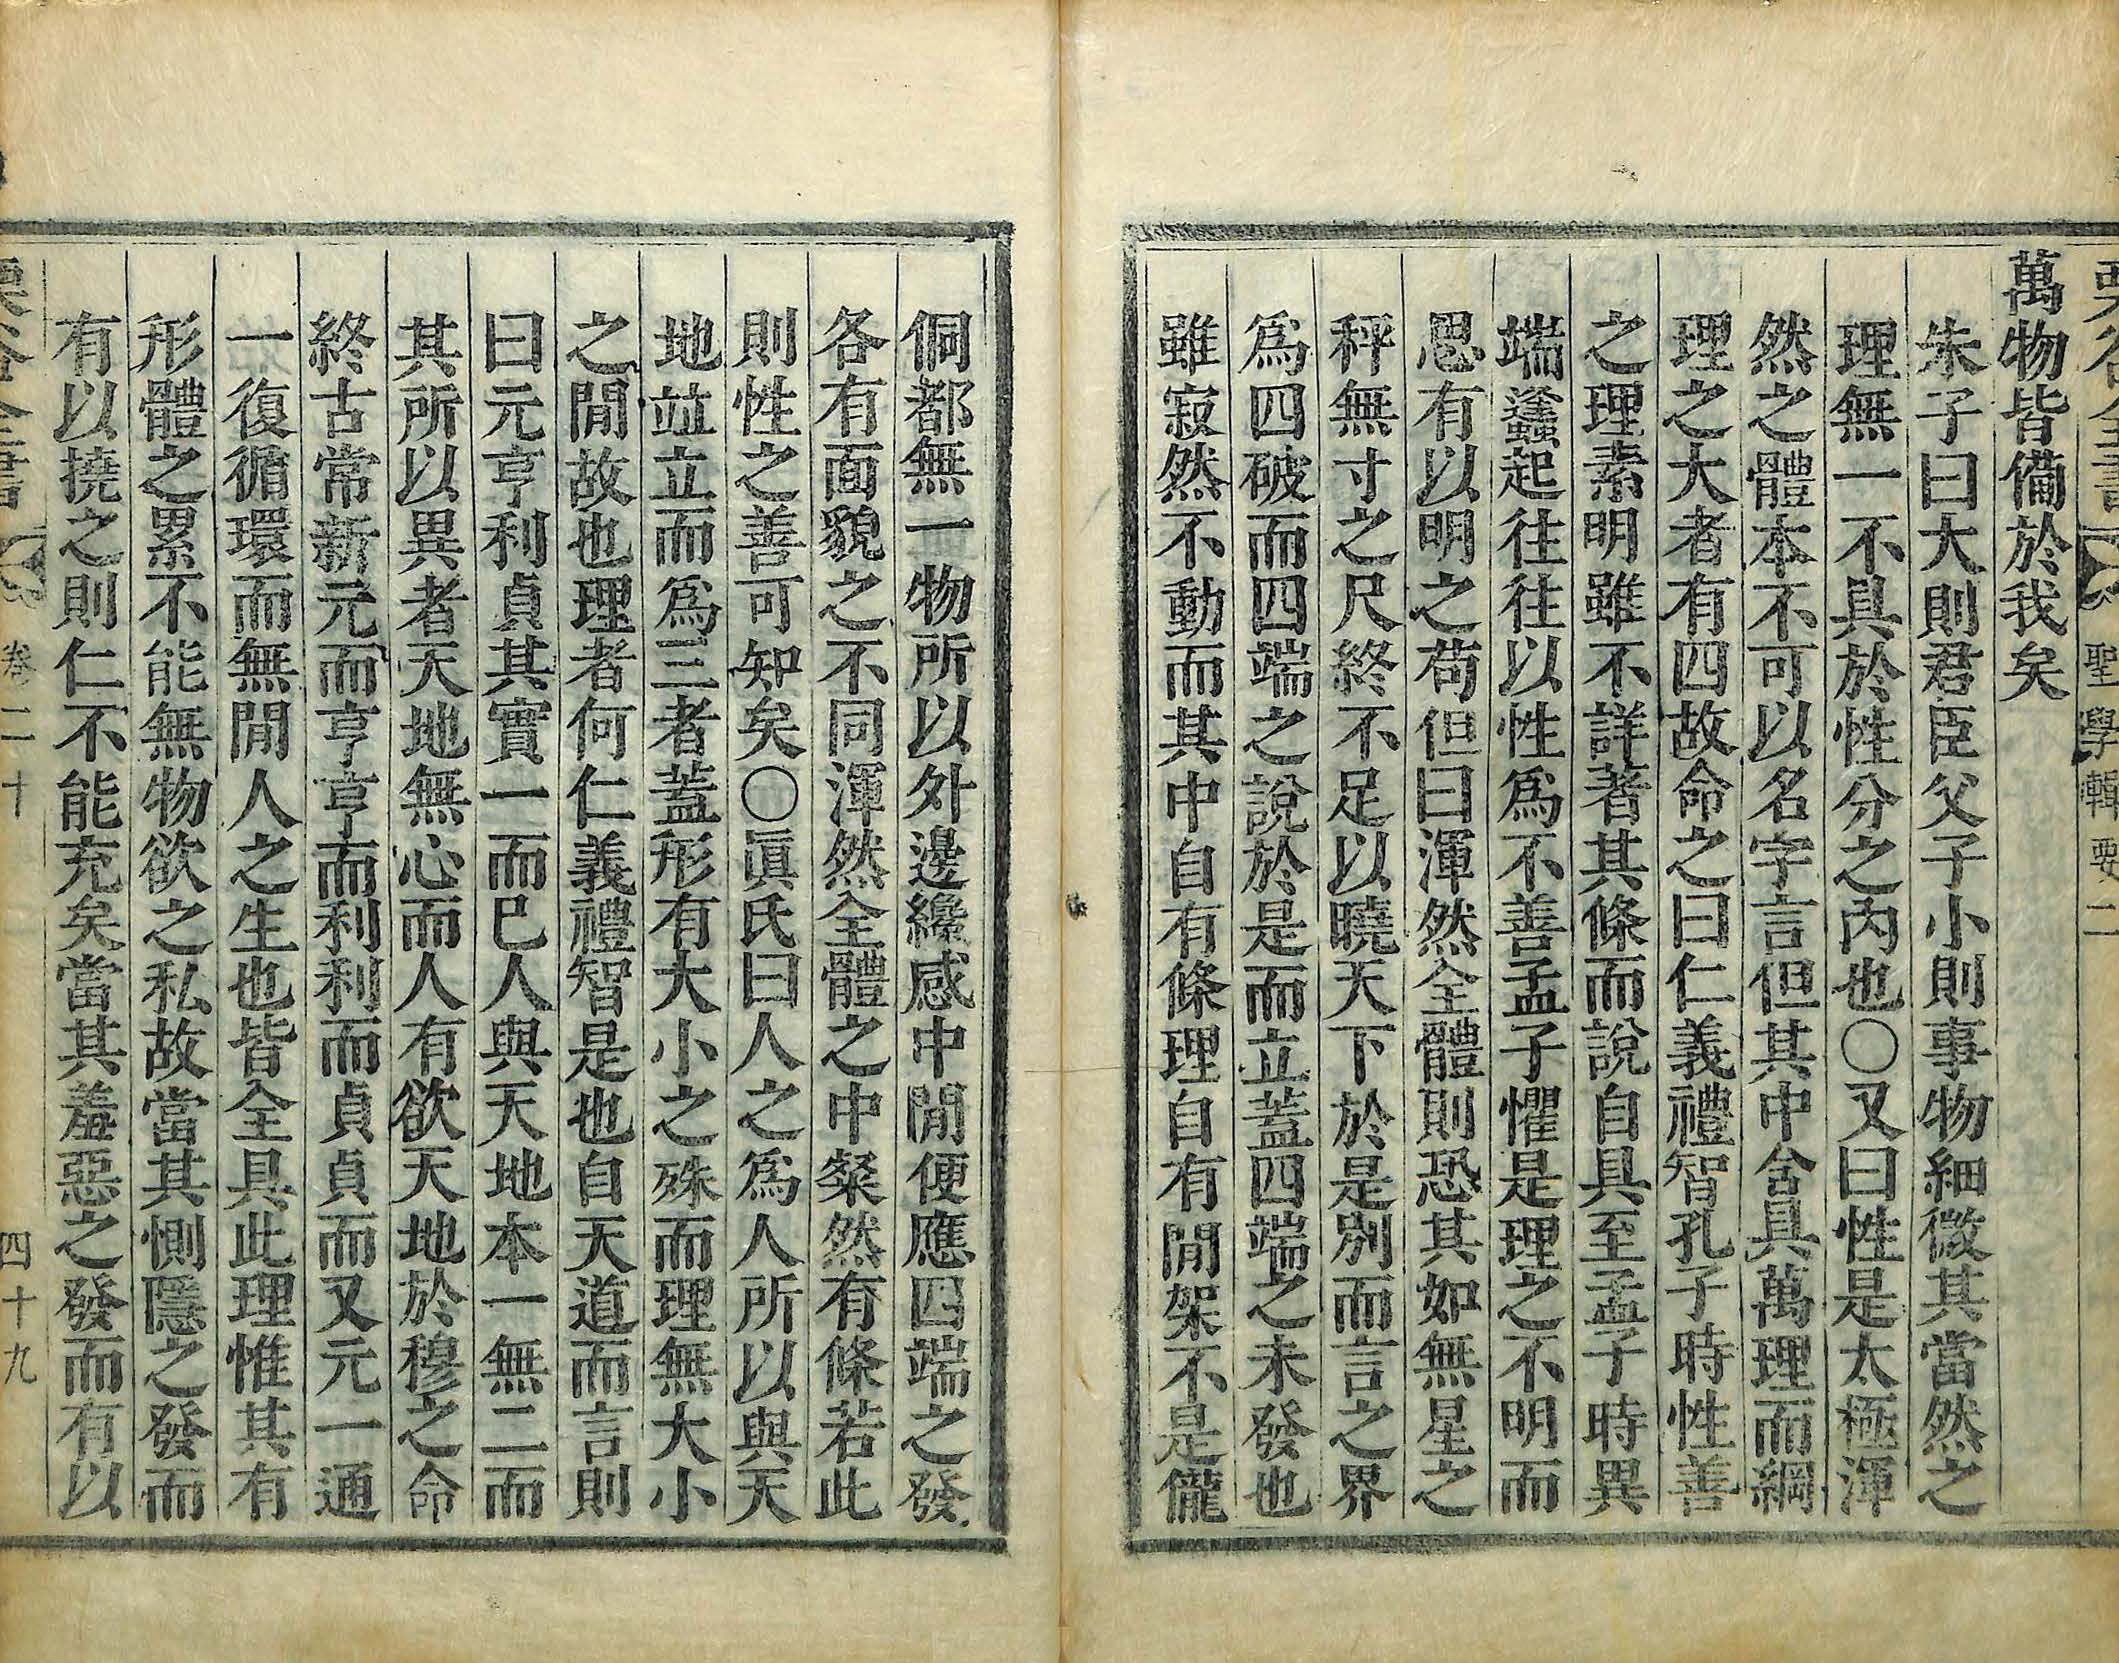 栗谷全書 聖學輯要二
萬物皆備於我矣
朱子曰大則君臣父子小則事物細微其當然之
理無一不具於性分之內也○又曰性是太極渾
然之體本不可以名字言但其中含具萬理而綱
理之大者有四故命之曰仁義禮智孔子時性善
之理素明雖不詳著其條而說自具至孟子時異
端蠭起往往以性爲不善孟子懼是理之不明而
思有以明之苟但曰渾然全體則恐其如無星之
秤無寸之尺終不足以曉天下於是別而言之界
爲四破而四端之說於是而立蓋四端之未發也
雖寂然不動而其中自有條理自有閒架不是儱
侗都無一物所以外邊纔感中閒便應四端之發
各有面貌之不同渾然全體之中粲然有條若此
則性之善可知矣○眞氏曰人之爲人所以與天
地竝立而爲三者蓋形有大小之殊而理無大小
之閒故也理者何仁義禮智是也自天道而言則
曰元亨利貞其實一而已人與天地本一無二而
其所以異者天地無心而人有欲天地於穆之命
終古常新元而亨亨而利利而貞貞而又元一通
一復循環而無閒人之生也皆全具此理惟其有
形體之累不能無物欲之私故當其惻隱之發而
有以撓之則仁不能充矣當其羞惡之發而有以
栗谷全書 卷二十 四十九